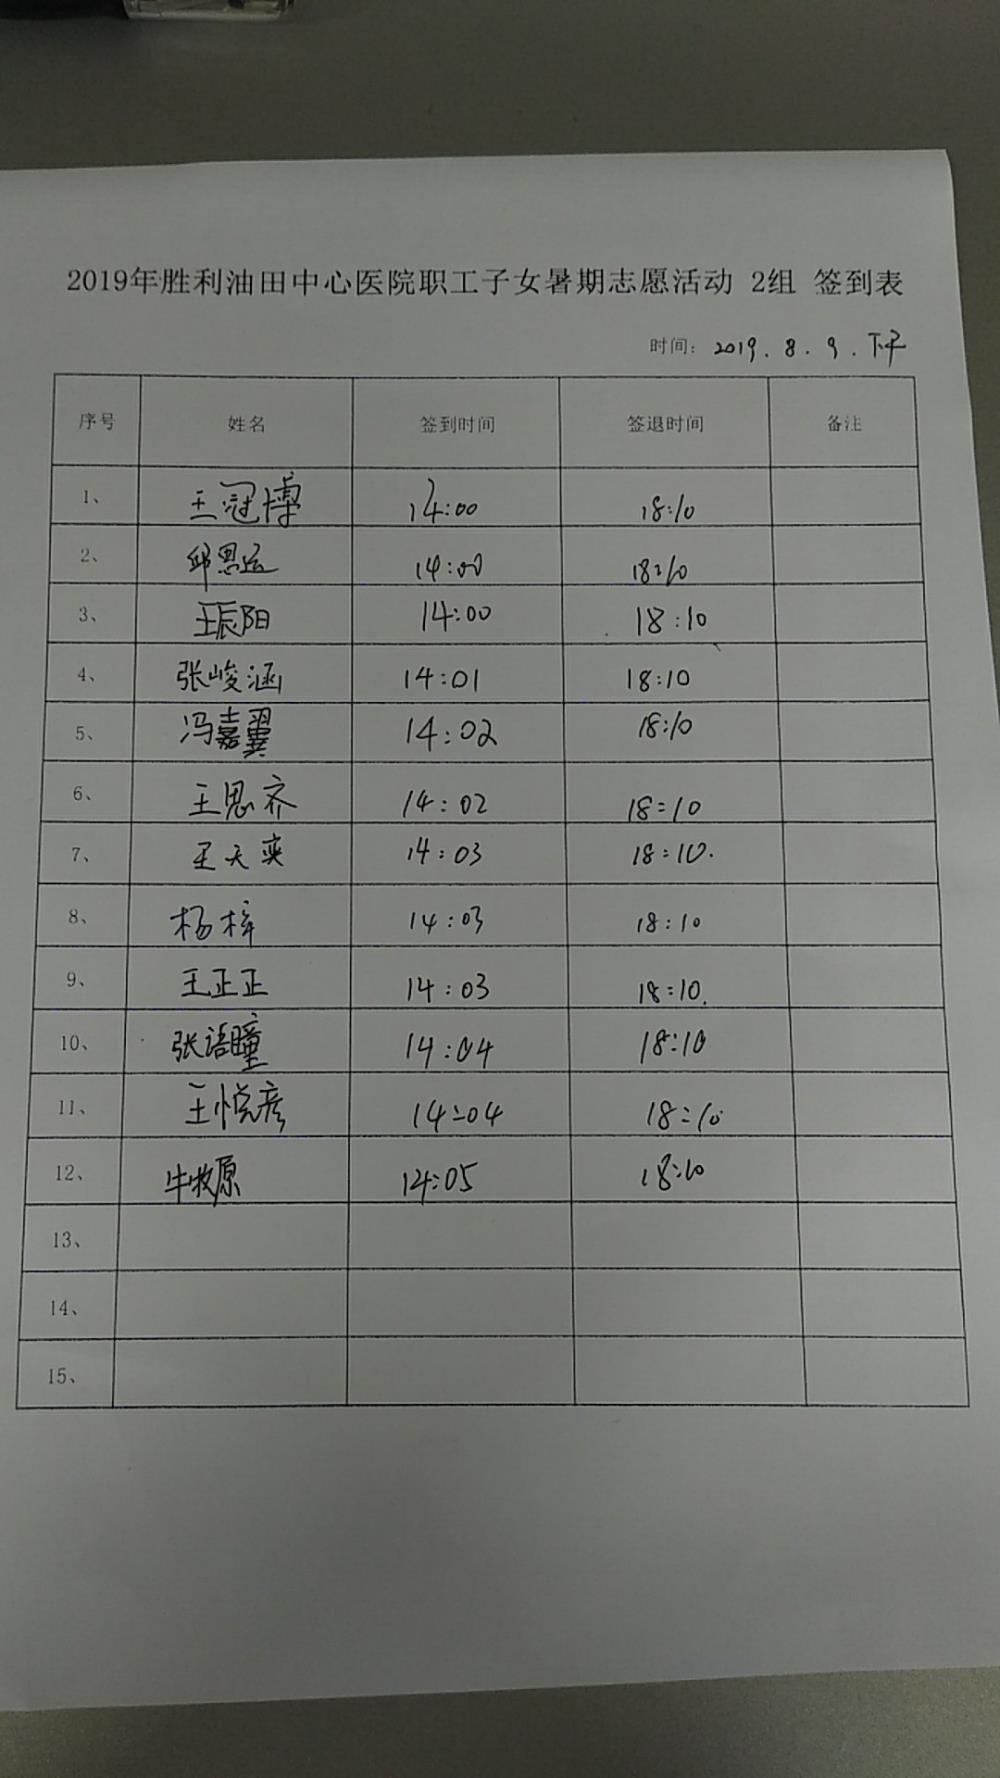 2019年胜利油田中心医院职工子女暑期志愿活动 2组 签到表
时间: 2019.8.9.下午
序号 姓名 签到时间 签退时间 备注
1、 王冠博 14:00 18:10
2、 邱思远 14:00 18:10
3、 王辰阳 14:00 18:10
4、 张峻涵 14:01 18:10
5、 冯嘉翼 14:02 18:10
6、 王思齐 14:02 18:10
7、 王天奕 14:03 18:10.
8、 杨梓 14:03 18:10
9、 王正正 14:03 18:10.
10、 张语瞳 14:04 18:10
11、 王悦彦 14:04 18:10
12、 牛牧原 14:05 18:10
13、
14、
15、